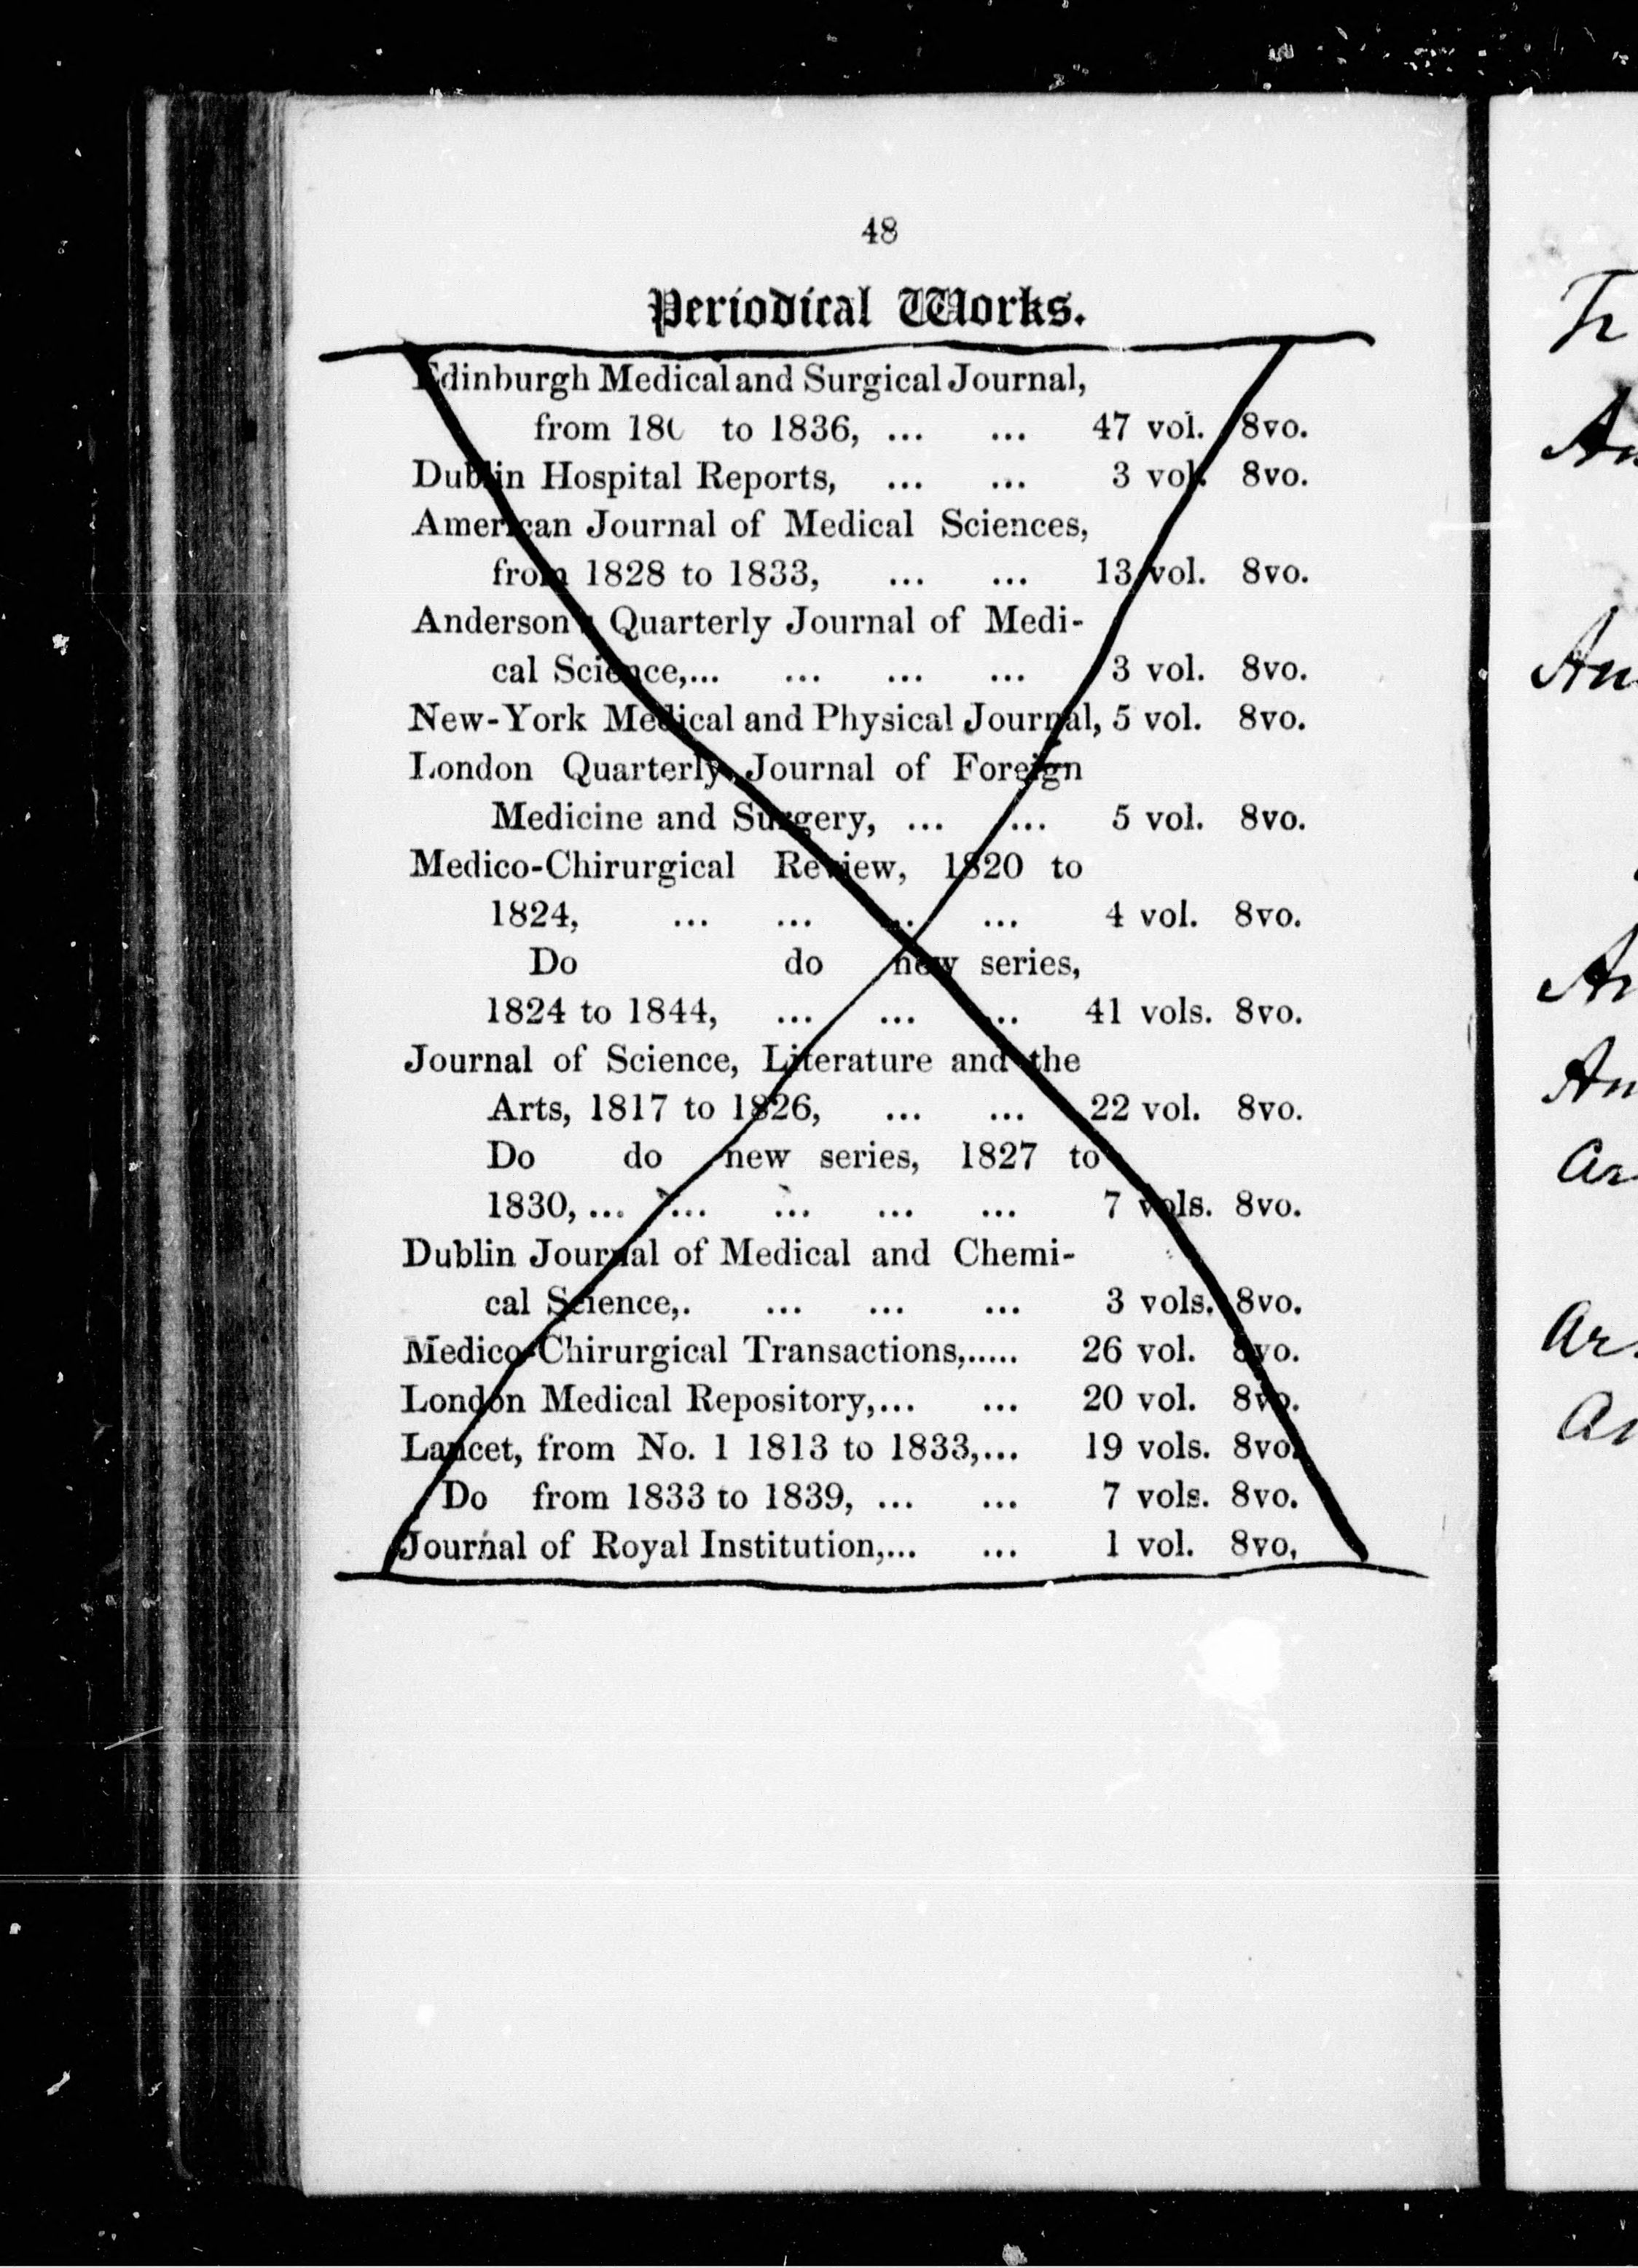 48
Periodical Works.
Edinburgh Medical and Surgical Journal,
from 180 to 1836, ... ... 47 vol. 8vo.
Dublin Hospital Reports, ... ... 3 vol. 8vo.
American Journal of Medical Sciences,
from 1828 to 1833, ... ... 13 vol. 8vo.
Anderson's Quarterly Journal of Medi-
cal Science,... ... ... ... 3 vol. 8vo.
New-York Medical and Physical Journal, 5 vol. 8vo.
London Quarterly Journal of Foreign
Medicine and Surgery, ... ... 5 vol. 8vo.
Medico-Chirurgical Review, 1820 to
1824, ... ... ... ... 4 vol. 8vo.
Do do new series,
1824 to 1844, ... ... ... 41 vols. 8vo.
Journal of Science, Literature and the
Arts, 1817 to 1826, ... ... 22 vol. 8vo.
Do do new series, 1827 to
1830, ... ... ... ... ... 7 vols. 8vo.
Dublin Journal of Medical and Chemi-
cal Science,. ... ... ... 3 vols. 8vo.
Medico-Chirurgical Transactions,..... 26 vol. 8vo.
London Medical Repository,... ... 20 vol. 8vo.
Lancet, from No. 1 1813 to 1833,... 19 vols. 8vo.
Do from 1833 to 1839, ... ... 7 vols. 8vo.
Journal of Royal Institution,... ... 1 vol. 8vo,